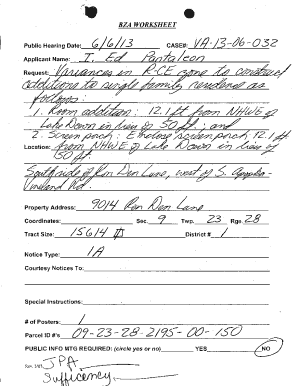 BZA WORKSHEET
Public Hearing Date: 6/6/13 CASE#: VA-13-06-032
Applicant Name: T. Ed Pantaleon
Request: Variances in RCE zone to construct
additions to single family residence as
follows:
1. Room addition: 12.1 ft from NHWE of
Lake Down in lieu of 50 ft; and
2. Screen porch: Existing screen porch 12.1 ft
Location: from NHWE of Lake Down in lieu of
50 ft.
South side of Den Lane, west of S. Apopka-
Vineland Rd.
Property Address: 9014 Den Lane
Coordinates: Sec. 9 Twp. 23 Rge. 28
Tract Size: 15614 District # 1
Notice Type: 1A
Courtesy Notices To:
Special Instructions:
# of Posters: 1
Parcel ID #'s 09-23-28-2195-00-150
PUBLIC INFO MTG REQUIRED: (circle yes or no) YES NO
JPA
Sufficency